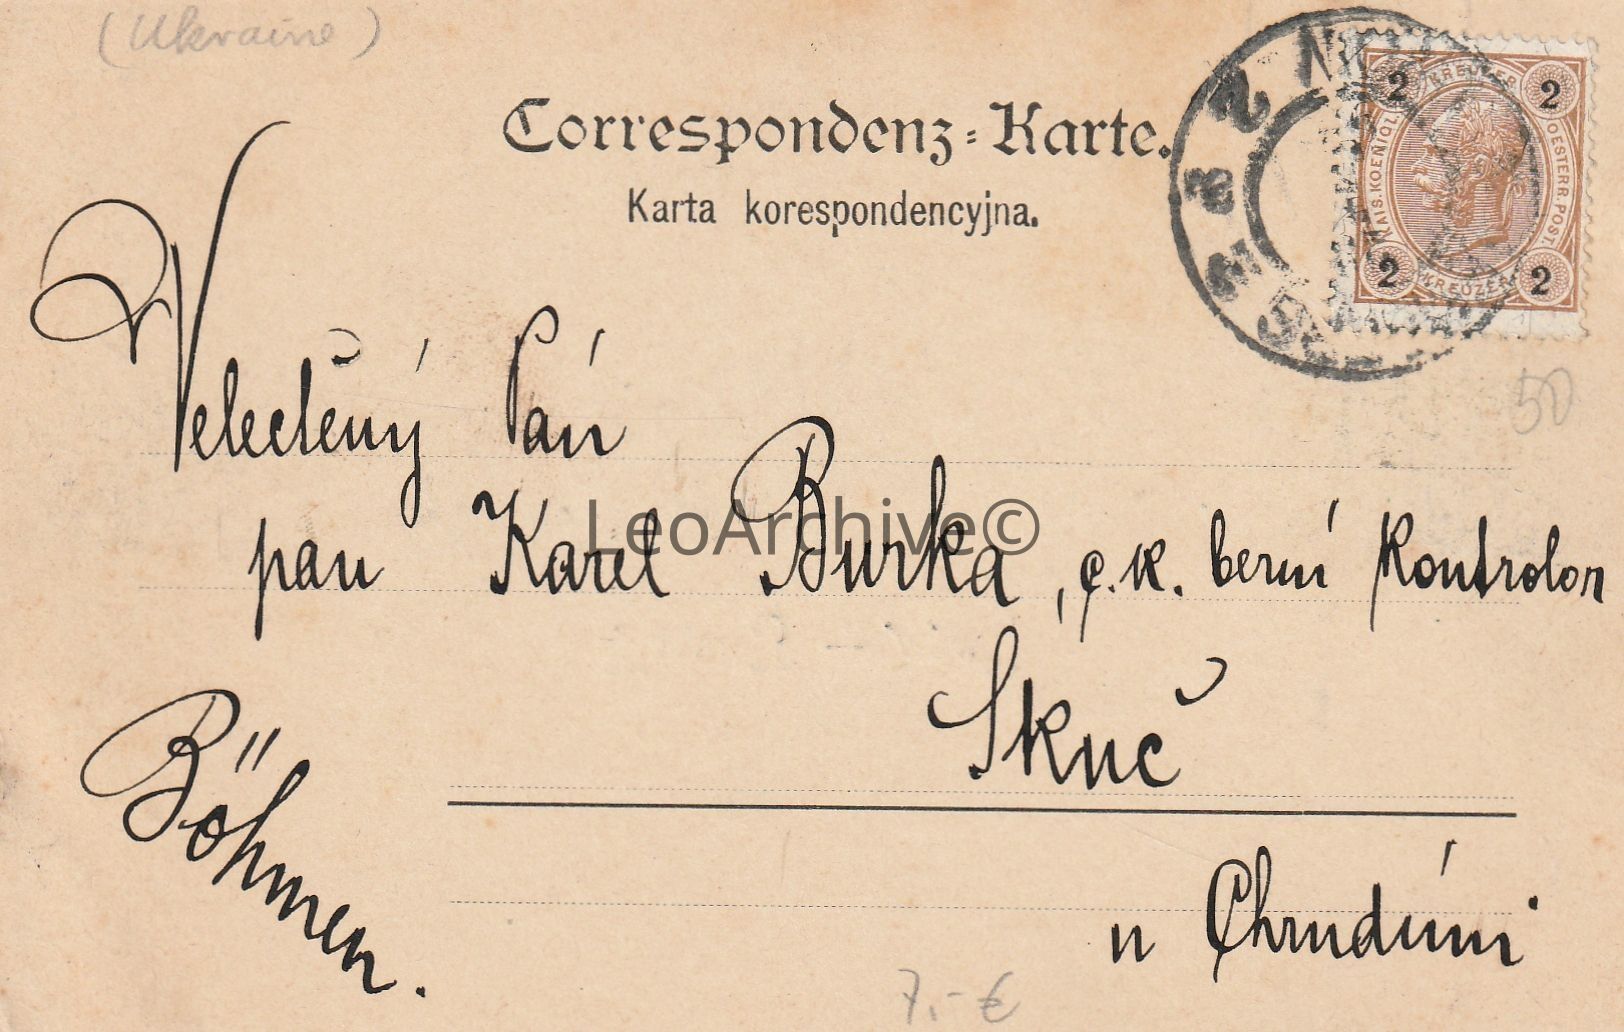 (Ukraine)
Correspondenz-Karte.
Karta korespondencyjna.
2 KREUZER 2
KAIS. KOENIGL. OESTERR. POST.
2 KREUZER 2
50
Velectěný Pán
pan Karel Burka, c. k. berní kontrolor
LeoArchive©
Skuč
Böhmen.
u Chrudími
7,- €